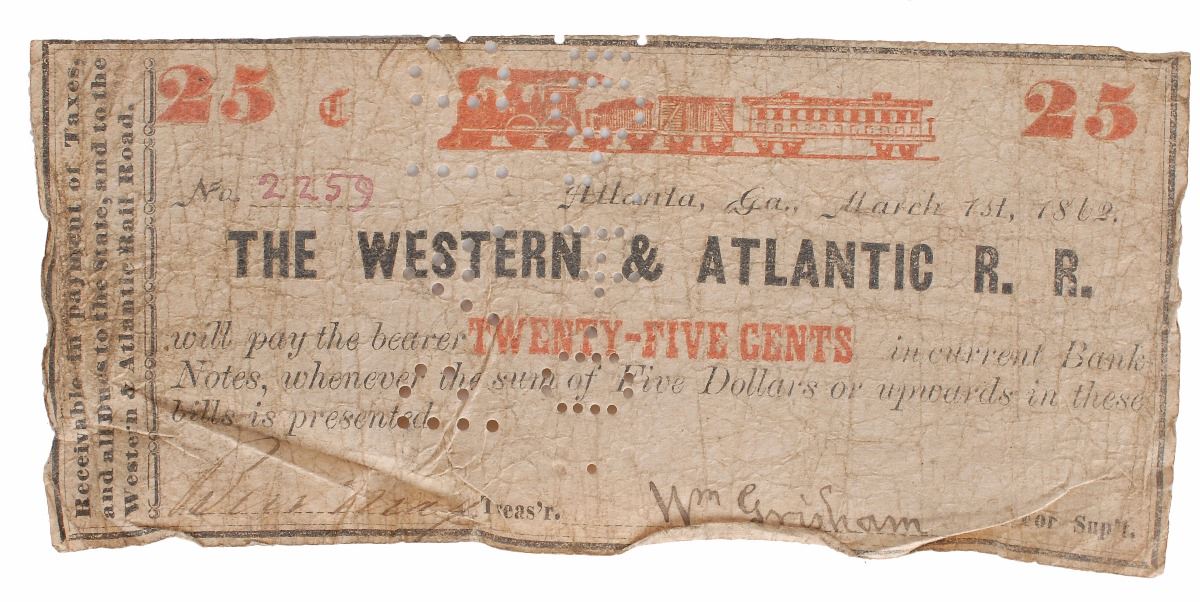 Receivable in payment of Taxes,
and all Dues to the State, and to the
Western & Atlantic Rail Road.
25 C
25
No. 2259
Atlanta, Ga., March 1st, 1862.
THE WESTERN & ATLANTIC R. R.
will pay the bearer TWENTY-FIVE CENTS in current Bank
Notes, whenever the sum of Five Dollars or upwards in these
bills is presented.
Treas'r.
Wm Grisham
for Sup't.